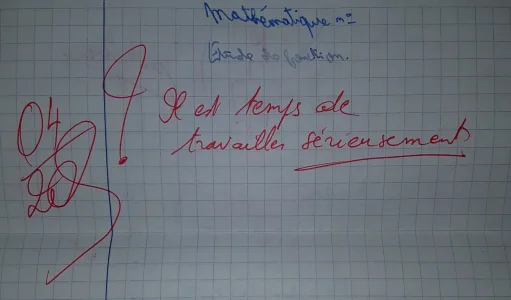 Mathématique n°
Étude de fonction.
Il est temps de
travailler sérieusement
04
20